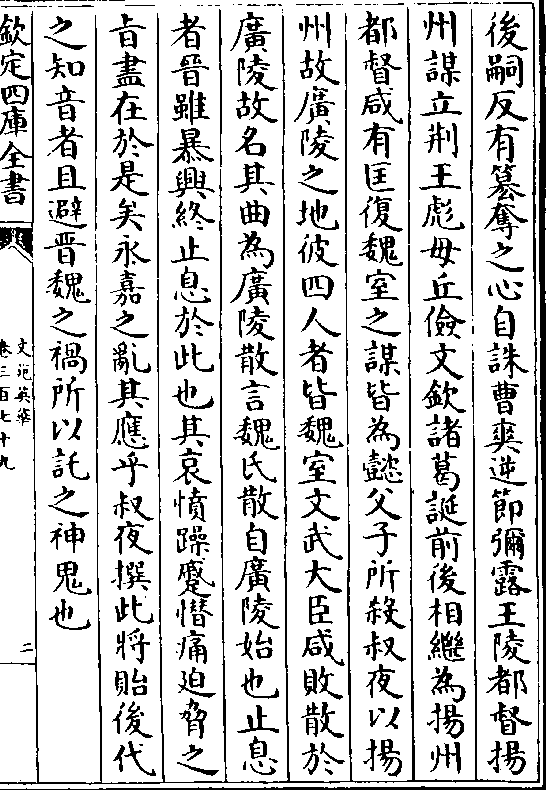 後嗣反有簒奪之心自誅曹爽逆節彌露王陵都督揚
州謀立荆王彪毋丘儉文欽諸葛誕前後相繼為揚州
都督咸有匡復魏室之謀皆為懿父子所殺叔夜以揚
州故廣陵之地彼四人者皆魏室文武大臣咸敗散於
廣陵故名其曲為廣陵散言魏氏散自廣陵始也止息
者晉雖暴興終止息於此也其哀憤躁蹙憯痛迫脅之
㫖盡在於是矣永嘉之亂其應乎叔夜撰此將貽後代
之知音者且避晉魏之禍所以託之神鬼也
欽定四庫全書
文苑英華
卷三百七十九
二